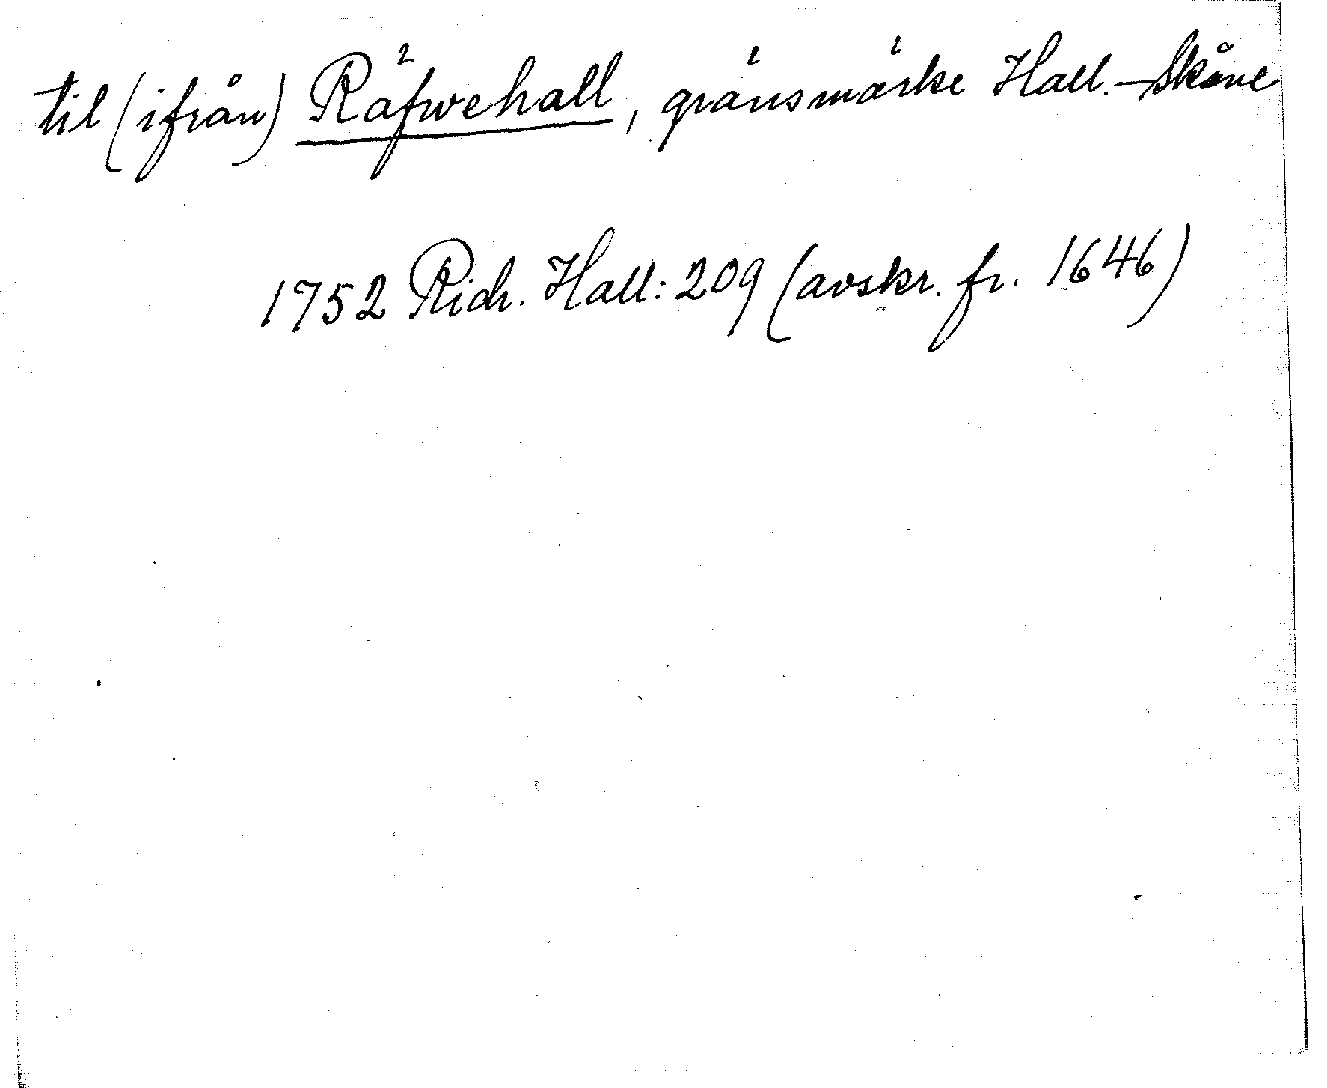 til (ifrån) Räfwehall, gränsmärke Hall.-Skåne
1752 Rich. Hall: 209 (avskr. fr. 1646)